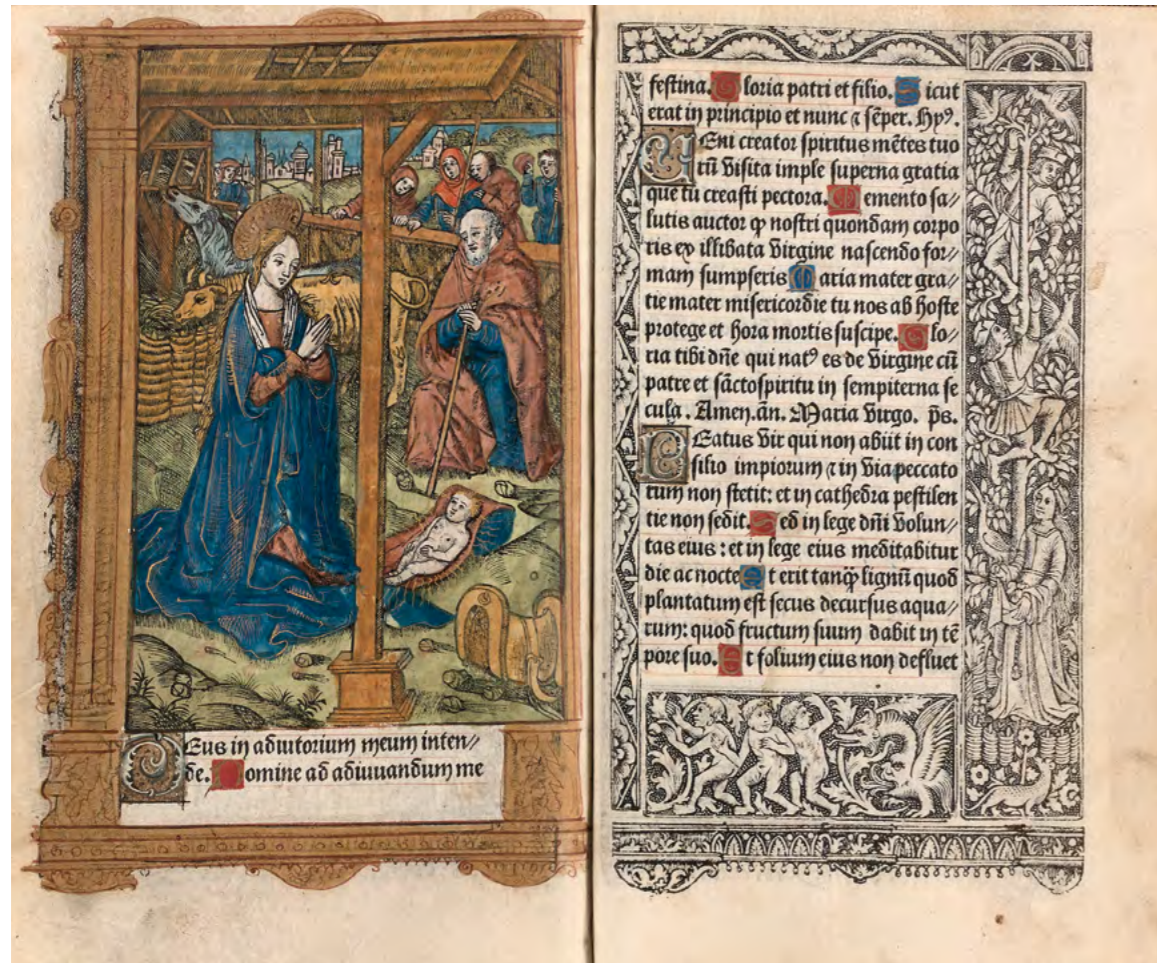 Eus in adiutorium meum inten/
de. Domine ad adiuuandum me
festina. Gloria patri et filio. Sicut
erat in principio et nunc ⁊ sēper. Hyꝰ.
UEni creator spiritus mētes tuo
rū visita imple superna gratia
que tu creasti pectora. Memento sa/
lutis auctor ꝙ nostri quondam corpo
ris ex illibata virgine nascendo for/
mam sumpseris Maria mater gra/
tie mater misericordie tu nos ab hoste
protege et hora mortis suscipe. Glo/
ria tibi dn̄e qui natꝰ es de virgine cū
patre et sāctospiritu in sempiterna se
cula. Amen. an̄. Maria virgo. p̄s.
BEatus vir qui non abiit in con
silio impiorum ⁊ in via peccato
rum non stetit: et in cathedra pestilen
tie non sedit. Sed in lege dn̄i volun/
tas eius: et in lege eius meditabitur
die ac nocte Et erit tanq̄ lignū quod
plantatum est secus decursus aqua/
rum: quod fructum suum dabit in tē
pore suo. Et folium eius non defluet